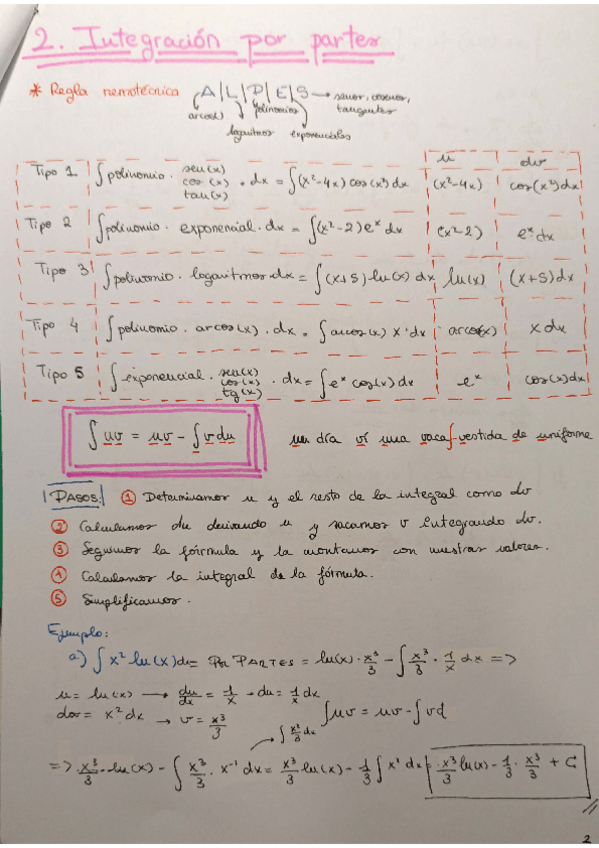 2. Integración por partes
* Regla nemotécnica A|L|P|E|S → senos, cosenos, tangentes
arcos() polinomios
logaritmos exponenciales
u dv
Tipo 1 ∫polinomio · sen(x) cos(x) tan(x) · dx = ∫(x²-4x) cos(x³) dx (x²-4x) cos(x³)dx
Tipo 2 ∫polinomio · exponencial · dx = ∫(x²-2)eˣ dx (x²-2) eˣ dx
Tipo 3 ∫polinomio · logaritmos dx = ∫(x+5) · ln(x) dx ln(x) (x+5)dx
Tipo 4 ∫polinomio · arcos(x) · dx = ∫arcos(x) x¹dx arcos(x) x dx
Tipo 5 ∫exponencial · sen(x) cos(x) tg(x) · dx = ∫eˣ cos(x) dx eˣ cos(x)dx
∫uv = uv - ∫v du un día ví una vaca ∫vestida de uniforme
PASOS: ① Determinamos u y el resto de la integral como dv
② Calculamos du derivando u y sacamos v integrando dv.
③ Seguimos la fórmula y la montamos con nuestros valores.
④ Calculamos la integral de la fórmula.
⑤ Simplificamos.
Ejemplo:
a) ∫x² ln(x)dx = POR PARTES = ln(x) · x³/3 - ∫x³/3 · 1/x dx =>
u = ln(x) → du/dx = 1/x → du = 1/x dx
dv = x² dx → v = x³/3 ∫uv = uv - ∫vd
∫x²/3 dx
=> x³/3 · ln(x) - ∫x³/3 · x⁻¹ dx = x³/3 ln(x) - 1/3 ∫x² dx = x³/3 ln(x) - 1/3 · x³/3 + C
2